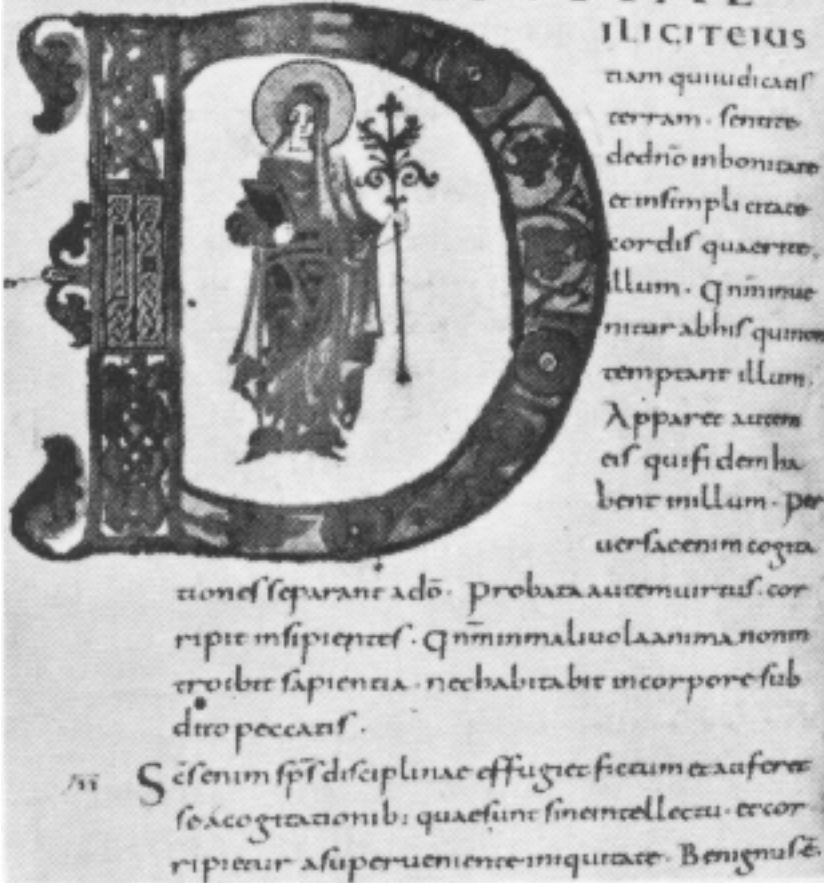 DILICITEIUS
tiam quiiudicatis
terram · sentite
dedñō inbonitate
et insimplicitate
cordis quaerite,
illum · Qnm̄inue
nitur abhis quinon
temptant illum,
Apparet autem
eis quifidemha
bent inillum · per
uersaeenimcogita
tiones separant adō · Probataautemuirtus · cor
ripit insipientes · Qnm̄inmaliuolaanima nonin
troibit sapientia · nechabitabit incorpore sub
dito peccatis ·
Sc̄senim sp̄s disciplinae effugiet fictum etauferet
seacogitationib: quaesunt sineintellectu · etcor
ripietur asuperuenienteiniquitate · Benignusē